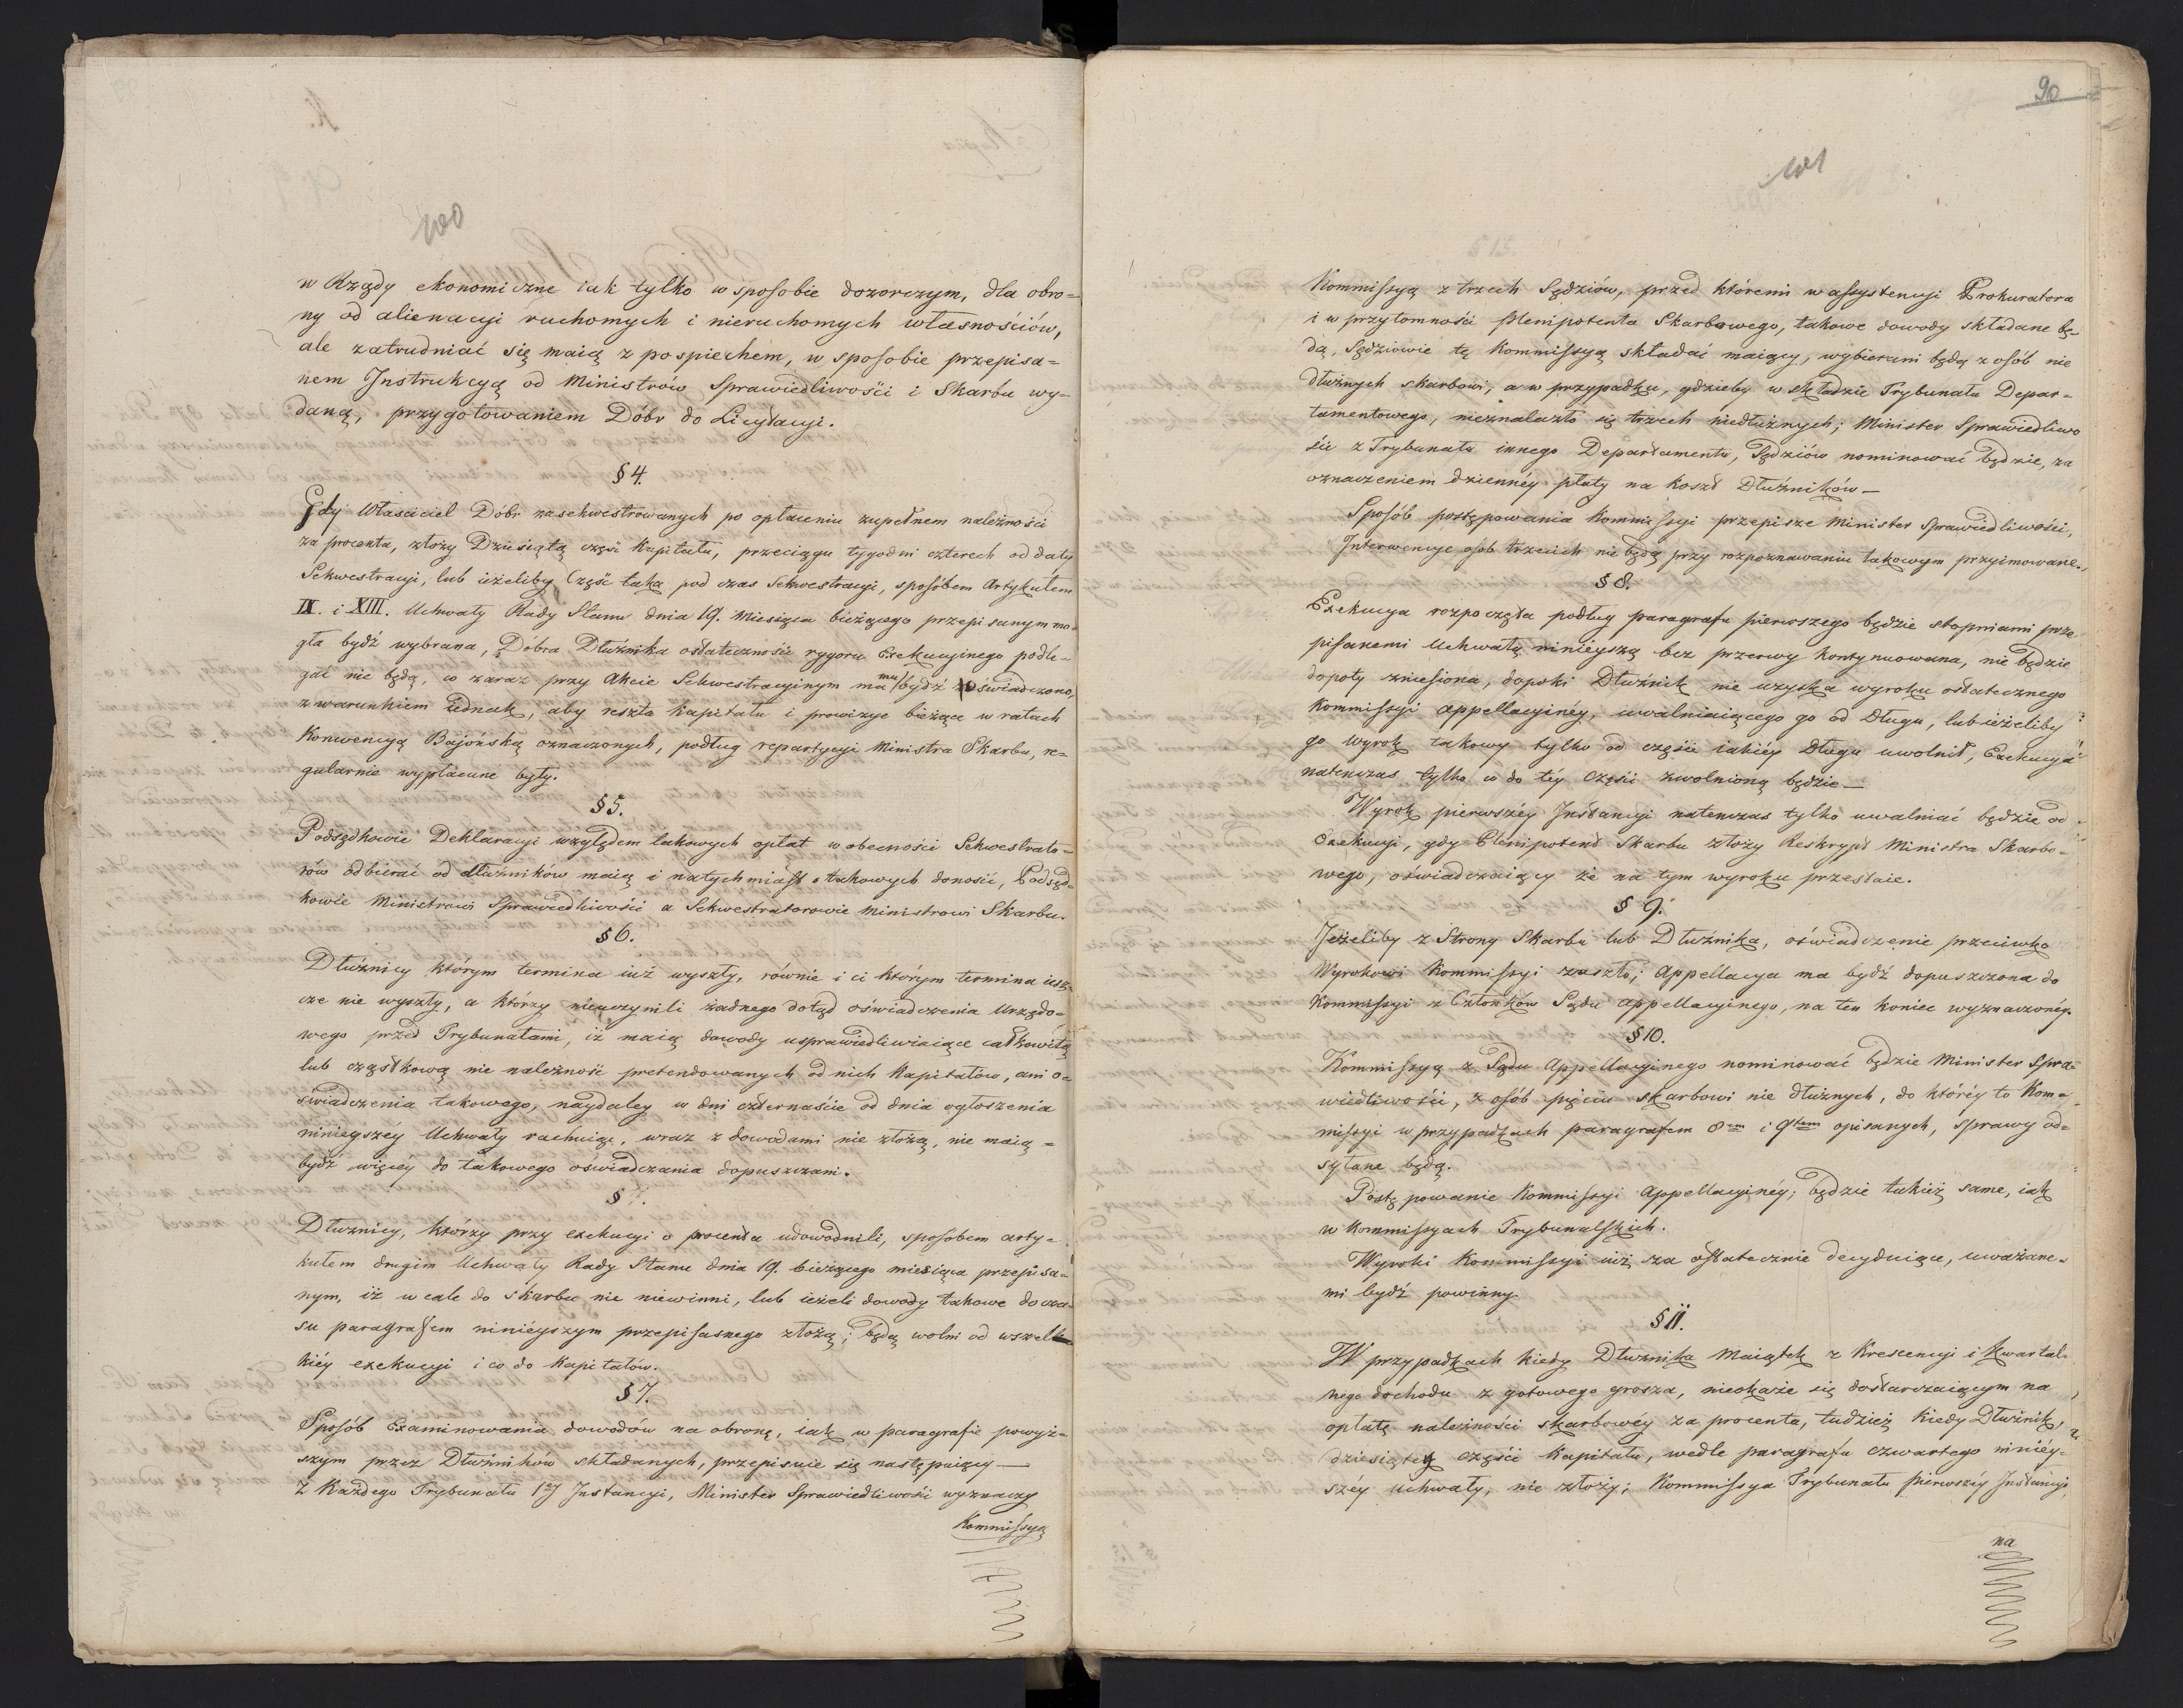 100
w Rządy ekonomiczne iak tylko w sposobie dozorczym, dla obro=
ny od alienacyi ruchomych i nieruchomych własnościów,
ale zatrudniać się maią z pospiechem, w sposobie przepisa=
nem Jnstrukcyą od Ministrów Sprawiedliwości i Skarbu wy=
daną, przygotowaniem Dóbr do Licytacyi.
§ 4.
Gdy Właściciel Dóbr zasekwestrowanych po opłaceniu zupełnem należności
za procenta, złoży Dziesiątą część Kapitału, przeciągu tygodni czterech od daty
Sekwestracyi, lub ieżeliby Część taka pod czas Sekwestracyi, sposobem Artykułem
IX. i XIII. Uchwały Rady Stanu dnia 19. Miesiąca bieżącego przepisanym mo=
gła bydź wybrana, Dobra Dłużnika ostateczności rygoru Exekucyinego podle=
gać nie będą, co zaraz przy Akcie Sekwestracyinym ma mu bydź oświadczono,
z warunkiem iednak, aby reszta kapitału i prowizye bieżące w ratach
Konwencyą Bajońską oznaczonych, podług repartycyi Ministra Skarbu, re=
gularnie wypłacone były.
§ 5.
Podsędkowie Deklaracyi względem takowych opłat w obecności Sekwestrato=
rów odbierać od dłużników maią i natychmiast o takowych donosić, Podsęd=
kowie Ministrowi Sprawiedliwości a Sekwestratorowie Ministrowi Skarbu.
§ 6.
Dłużnicy którym termina iuż wyszły, równie i ci którym termina iesz=
cze nie wyszły, a którzy nieuczynili żadnego dotąd oświadczenia Urzędo=
wego przed Trybunałami, iż maią dowody usprawiedliwiaiące całkowitą
lub cząstkową nie należność pretendowanych od nich Kapitałów, ani o=
świadczenia takowego, naydaley w dni czternaście od dnia ogłoszenia
ninieyszéy Uchwały rachuiąc, wraz z dowodami nie złożą, nie maią =
bydź więcéy do takowego oświadczania dopuszczani.
§
Dłużnicy, którzy przy exekucyi o procenta udowodnili, sposobem arty=
kułem drugim Uchwały Rady Stanu dnia 19. bieżącego miesiąca przepisa=
nym, iż wcale do skarbu nie niewinni, lub ieżeli dowody takowe do cza=
su paragrafem niniéyszym przepisanego złożą; będą wolni od wszel
kiéy exekucyi i co do Kapitałów.
§ 7.
Sposób Examinowania dowodów na obronę, iak w paragrafie powyż=
szym przez Dłużników składanych, przepisuie się następuiący —
Z Każdego Trybunału 1éy Jnstancyi, Minister Sprawiedliwości wyznaczy
Kommissyą
90
101
§ 13.
Kommissyą z trzech Sędziów, przed któremi w assystencyi Prokuratora
i w przytomności plenipotenta Skarbowego, takowe dowody składane bę=
dą, Sędziowie tę Kommissyą składać maiący, wybierani będą z osób nie
dłużnych skarbowi, a w przypadku, gdzieby w składzie Trybunału Depar=
tamentowego, nieznalazło się trzech niedłużnych; Minister Sprawiedliwo
ści z Trybunału innego Departamentu, Sędziów nominować będzie, za
oznaczeniem dziennéy płaty na koszt Dłużników —
Sposób postępowania Kommissyi przepisze Minister Sprawiedliwości,
Jnterwencye osób trzecich nie będą przy rozpoznawaniu takowym przyimowane.
§ 8.
Exekucya rozpoczęta podług paragrafu pierwszego będzie stopniami prze
pisanemi Uchwałą ninieyszą bez przerwy kontynuowana, nie będzie
dopoty zniesiona, dopóki Dłużnik nie uzyska wyroku ostatecznego
Kommissyi appellacyinéy, uwalniaiącego go od Długu, lub ieżeliby
go Wyrok takowy tylko od części iakiéy Długu uwolnił, Exekucya
natenczas tylko co do téy części zwolnioną będzie —
Wyrok pierwszéy Jnstancyi natenczas tylko uwalniać będzie od
Exekucyi, gdy Plenipotent Skarbu złoży Reskrypt Ministra Skarbo=
wego, oświadczaiący że na tym wyroku przestaie.
§ 9.
Jeżeliby z Strony Skarbu lub Dłużnika, oświadczenie przeciwko
Wyrokowi Kommissyi zaszło; Appellacya ma bydź dopuszczona do
Kommissyi z Członków Sądu appellacyinego, na ten koniec wyznaczonéy.
§ 10.
Kommissyą z Sądu Appellacyinego nominować będzie Minister Spra=
wiedliwości, z osób pięciu skarbowi nie dłużnych, do któréy to Kom=
missyi w przypadkach paragrafem 8em i 9tem opisanych, sprawy od=
syłane będą.
Postępowanie Kommissyi Appellacyinéy, będzie takież same, iak
w Kommissyach Trybunalskich.
Wyroki Kommissyi iuż za ostatecznie decyduiące, uważane=
mi bydź powinny.
§ 11.
W przypadkach kiedy Dłużnika Maiątek z Krescencyi i Kwartal=
nego dochodu z gotowego grosza, nieokaże się dostarczaiącym na
opłatę należności skarbowéy za procenta, tudzież kiedy Dłużnik,
dziesiątey części Kapitału, wedle paragrafu czwartego niniey=
széy uchwały, nie złoży; Kommissya Trybunału pierwszéy Jnstancyi
na